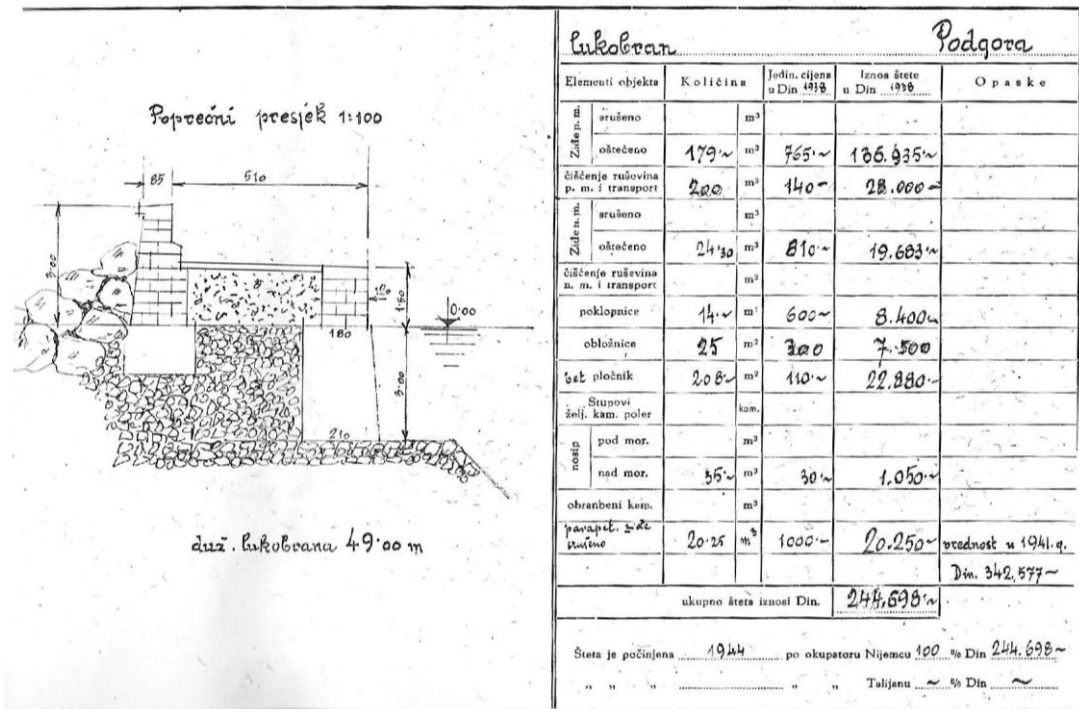 Poprečni presjek 1:100
85 510
3.00
1.50
0.00
180
3.00
210
duž. lukobrana 49.00 m
lukobran Podgora
Elementi objekta Količina Jedin. cijena u Din 1938 Iznos štete u Din 1938 Opaske
Ziđe p. m.
srušeno m³
oštećeno 179.~ m³ 765.~ 136.935.~
čišćenje ruševina p. m. i transport 200 m³ 140~ 28.000~
Ziđe n. m.
srušeno m³
oštećeno 24.30 m³ 810.~ 19.683~
čišćenje ruševina n. m. i transport m³
poklopnice 14.~ m¹ 600~ 8.400~
obložnice 25 m² 300 7.500
bet pločnik 208~ m² 110.~ 22.880.~
Stupovi želj. kam. poler kom.
nasip
pod mor. m³
nad mor. 35.~ m³ 30.~ 1.050.~
obranbeni kam. m³
parapet. ziđe srušeno 20.25 m³ 1000.~ 20.250~ vrednost u 1941.g.
Din. 342.577~
ukupno šteta iznosi Din. 244.698.~
Šteta je počinjena 1944 po okupatoru Nijemcu 100 % Din 244.698~
" " " " " Talijanu ~ % Din ~